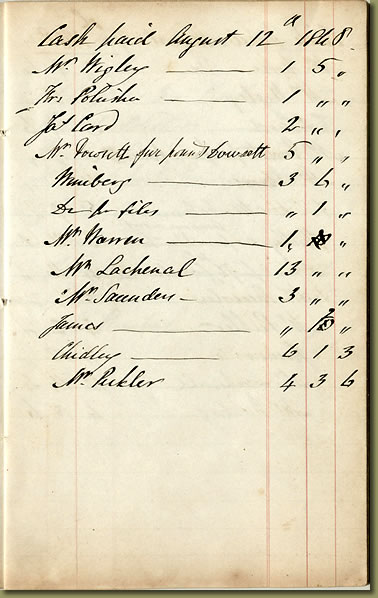 Cash paid August 12th 1848.
Mr Wigley 1 5 "
Frs Polisher 1 " "
Jas Card 2 " "
Mr Dowsett five pound Dowsett 5 " "
Minibery 3 6 "
Do for files " 1 "
Mr Warren 1 "
Mr Lachenal 13 " "
Mr Saunders 3 " "
James " "
Chidley 6 1 3
Mr Pickler 4 3 6